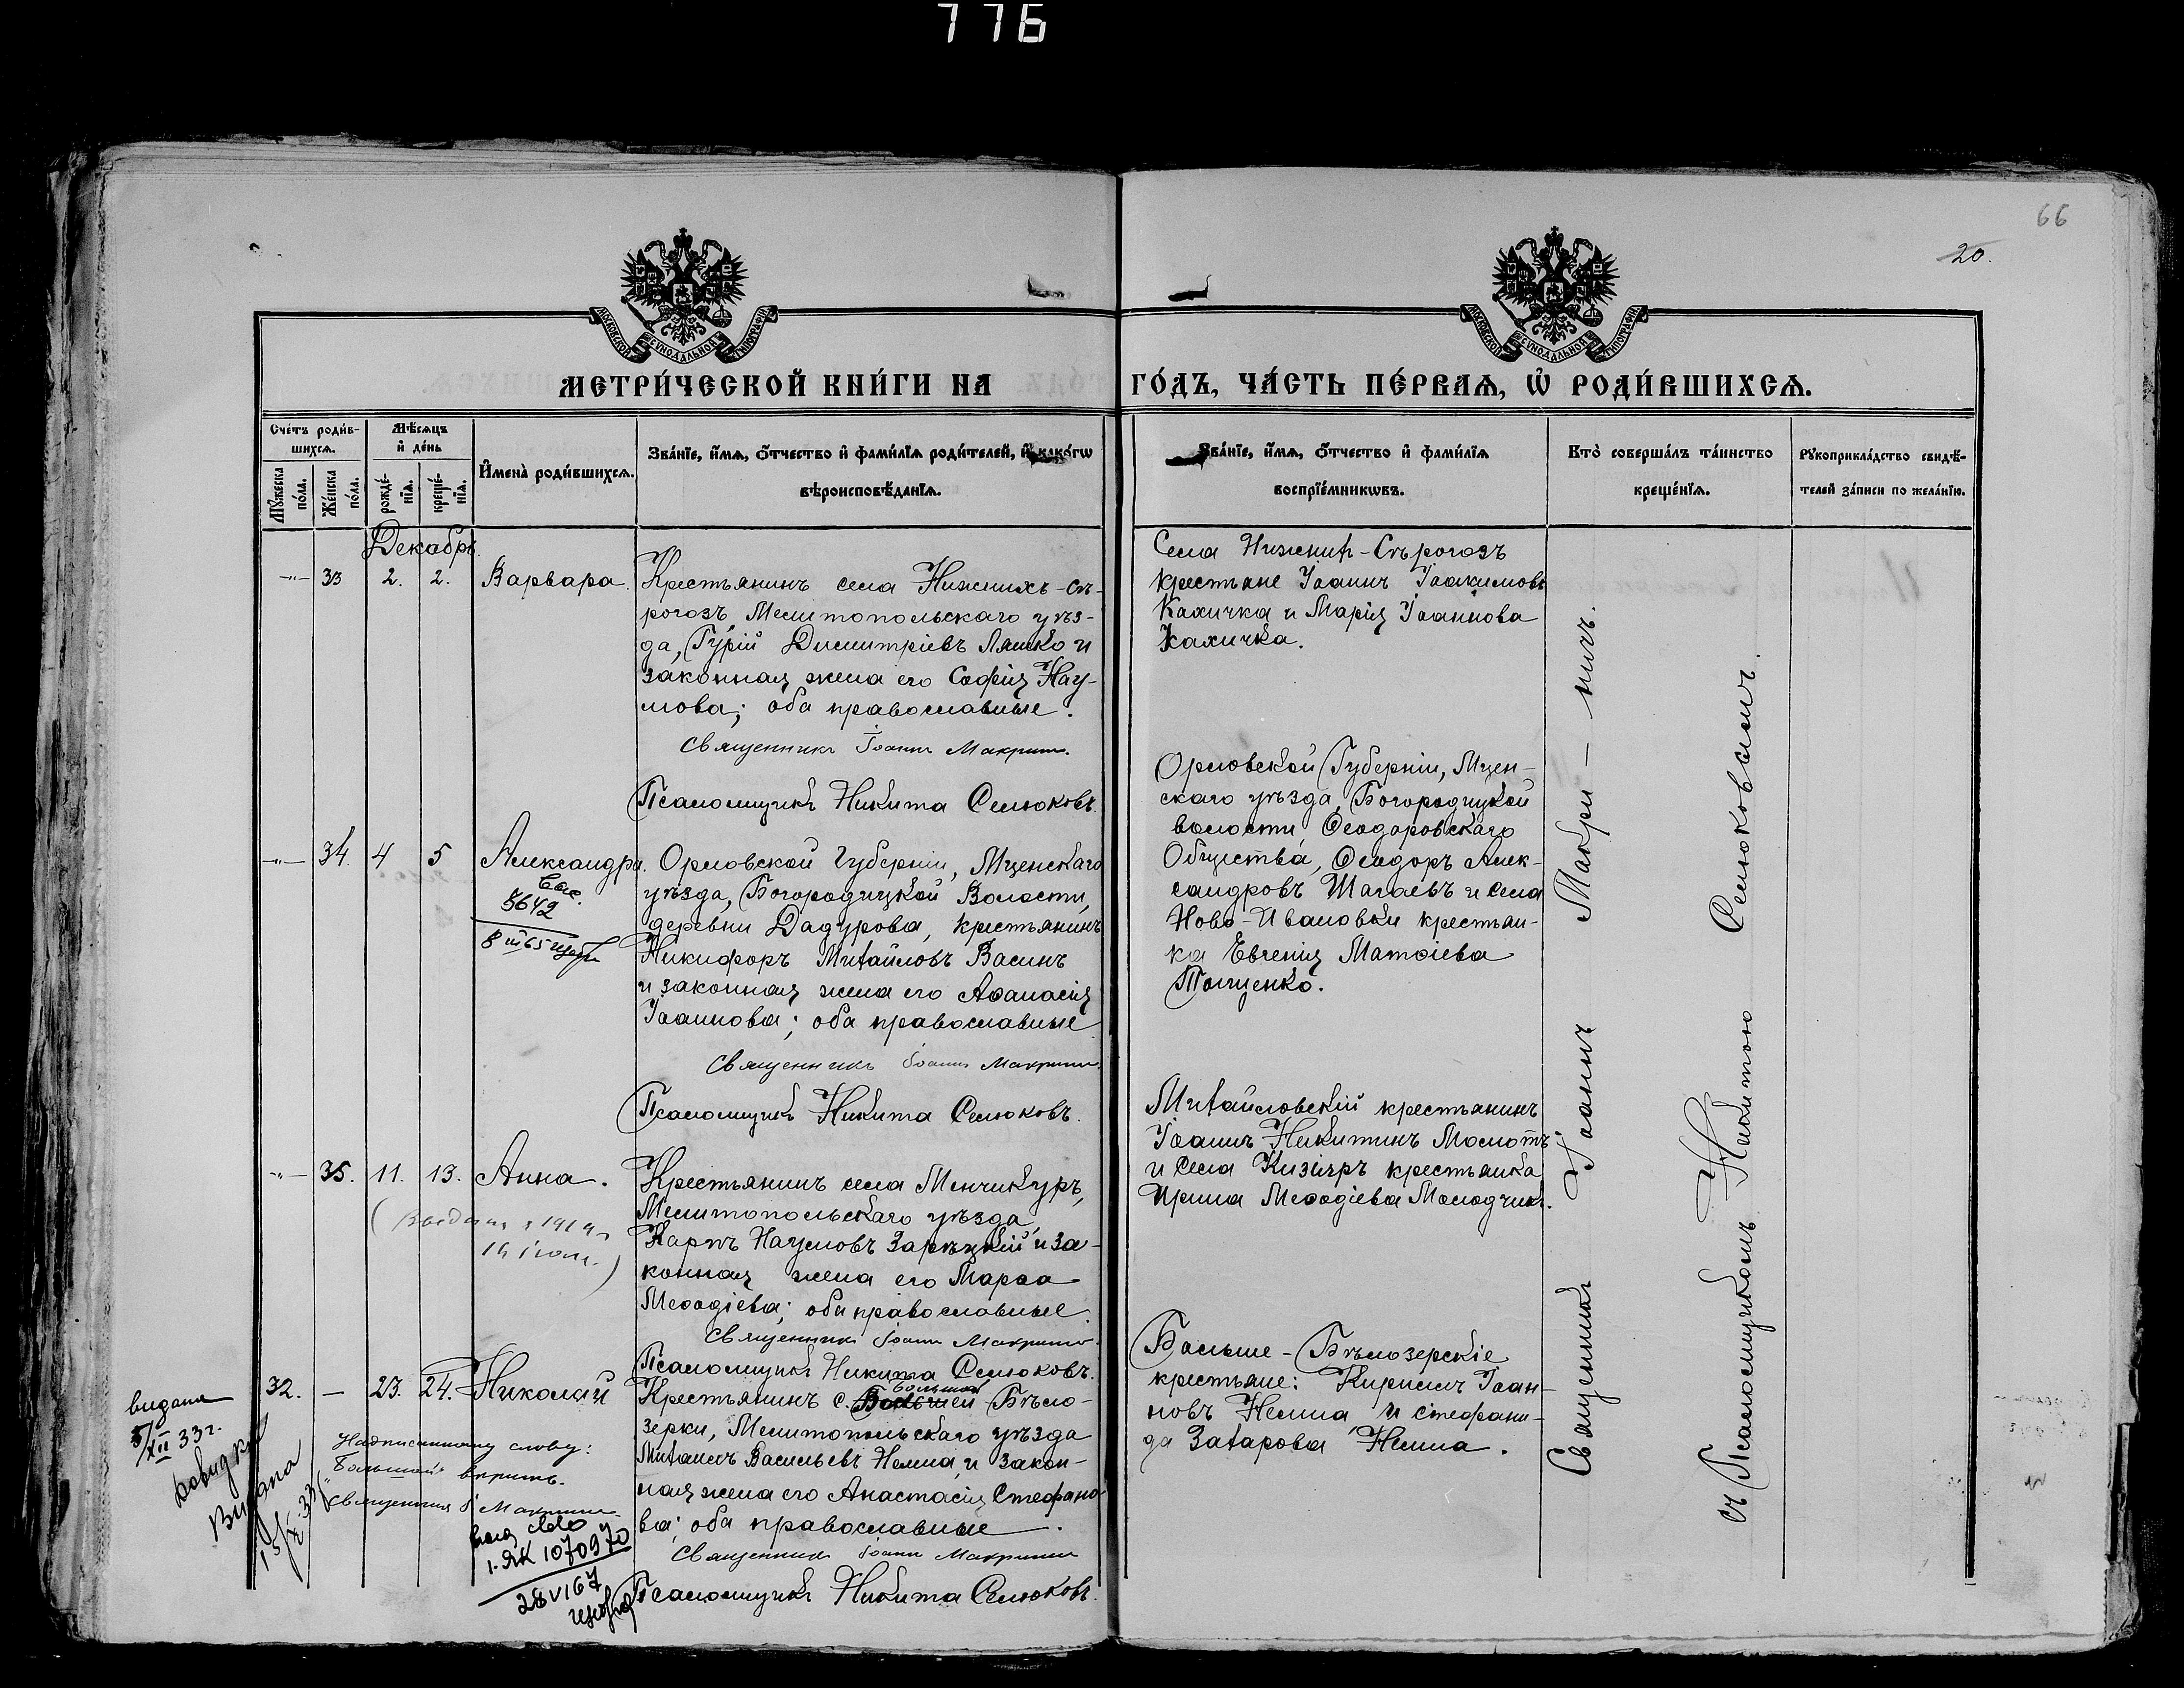 776
66
20.
МОСКОВСКОЙ СѴНОДАЛЬНОЙ ТИПОГРАФІИ
МОСКОВСКОЙ СѴНОДАЛЬНОЙ ТИПОГРАФІИ
МЕТРИ́ЧЕСКОЙ КНИ́ГИ НА
ГО́ДЪ, ЧА́СТЬ ПЕ́РВАѦ, Ѡ҆ РОДИ́ВШИХСѦ.
Сче́тъ роди́в-
шихсѧ.
Мꙋ́жеска
по́ла.
Же́нска
по́ла.
Мѣ́сѧцъ
и҆ де́нь
рожде́-
нїѧ.
креще́-
нїѧ.
И҆мена̀ роди́вшихсѧ.
Зва́нїе, и҆́мѧ, ѻ҆́тчество и҆ фами́лїѧ роди́телей, и҆ како́гѡ
вѣроисповѣ́данїѧ.
Зва́нїе, и҆́мѧ, ѻ҆́тчество и҆ фами́лїѧ
воспрїе́мникѡвъ.
Кто̀ соверша́лъ та́инство
креще́нїѧ.
Рꙋкоприкла́дство свидѣ́-
телей за́писи по жела́нїю.
Декабрь.
-"- 33 2. 2. Варвара.
Крестьянинъ села Нижнихъ-Сѣ-
рогозъ, Мелитопольскаго уѣз-
да, Гурій Димитріевъ Ляшко и
законная жена его Софія Нау-
мова; оба православные.
Священникъ Іоаннъ Макринъ.
Псаломщикъ Никита Селюковъ.
Села Нижнихъ-Сѣрогозъ
крестьяне Іоаннъ Іоакимовъ
Кахичка и Марія Іоаннова
Кахичка.
-"- 34. 4 5 Александра.
5642
Орловской Губерніи, Мценскаго
уѣзда, Богородицкой Волости,
деревни Дадурова, крестьянинъ
Никифоръ Михайловъ Васинъ
и законная жена его Аѳанасія
Іоаннова; оба православные
Священникъ Іоаннъ Макринъ.
Псаломщикъ Никита Селюковъ.
Орловской Губерніи, Мцен-
скаго уѣзда, Богородицкой
волости, Ѳеодоровскаго
Общества, Ѳеодоръ Алек-
сандровъ Шагаевъ и села
Ново-Ивановки крестьян-
ка Евгенія Матѳіева
Тищенко.
-"- 35. 11. 13. Анна.
Крестьянинъ села Менчикуръ,
Мелитопольскаго уѣзда,
Карпъ Наумовъ Зарѣцкій и за-
конная жена его Марѳа
Меѳодіева; оба православные.
Священникъ Іоаннъ Макринъ.
Псаломщикъ Никита Селюковъ.
Михайловскій крестьянинъ
Іоаннъ Никитинъ Молотъ
и села Кизіяръ крестьянка
Ирина Меѳодіева Молодчикъ.
32. — 23. 24. Николай
Крестьянинъ с. Большой Бѣло-
зерки, Мелитопольскаго уѣзда
Михаилъ Васильевъ Немна, и закон-
ная жена его Анастасія Стефано-
ва; оба православные.
Священникъ Іоаннъ Макринъ
Псаломщикъ Никита Селюковъ.
Больше-Бѣлозерскіе
крестьяне: Кириллъ Іоан-
новъ Немна и Стефани-
да Захарова Немна.
видана
5/XII 33 г.
довидка
Видана
Надписанному слову:
"Большой" вѣрить.
Священникъ І. Макринъ
1-ЯК 1070970
28 VI 67
Священникъ Іоаннъ Макри-нъ.
съ Псаломщикомъ Никитою Селюковымъ.